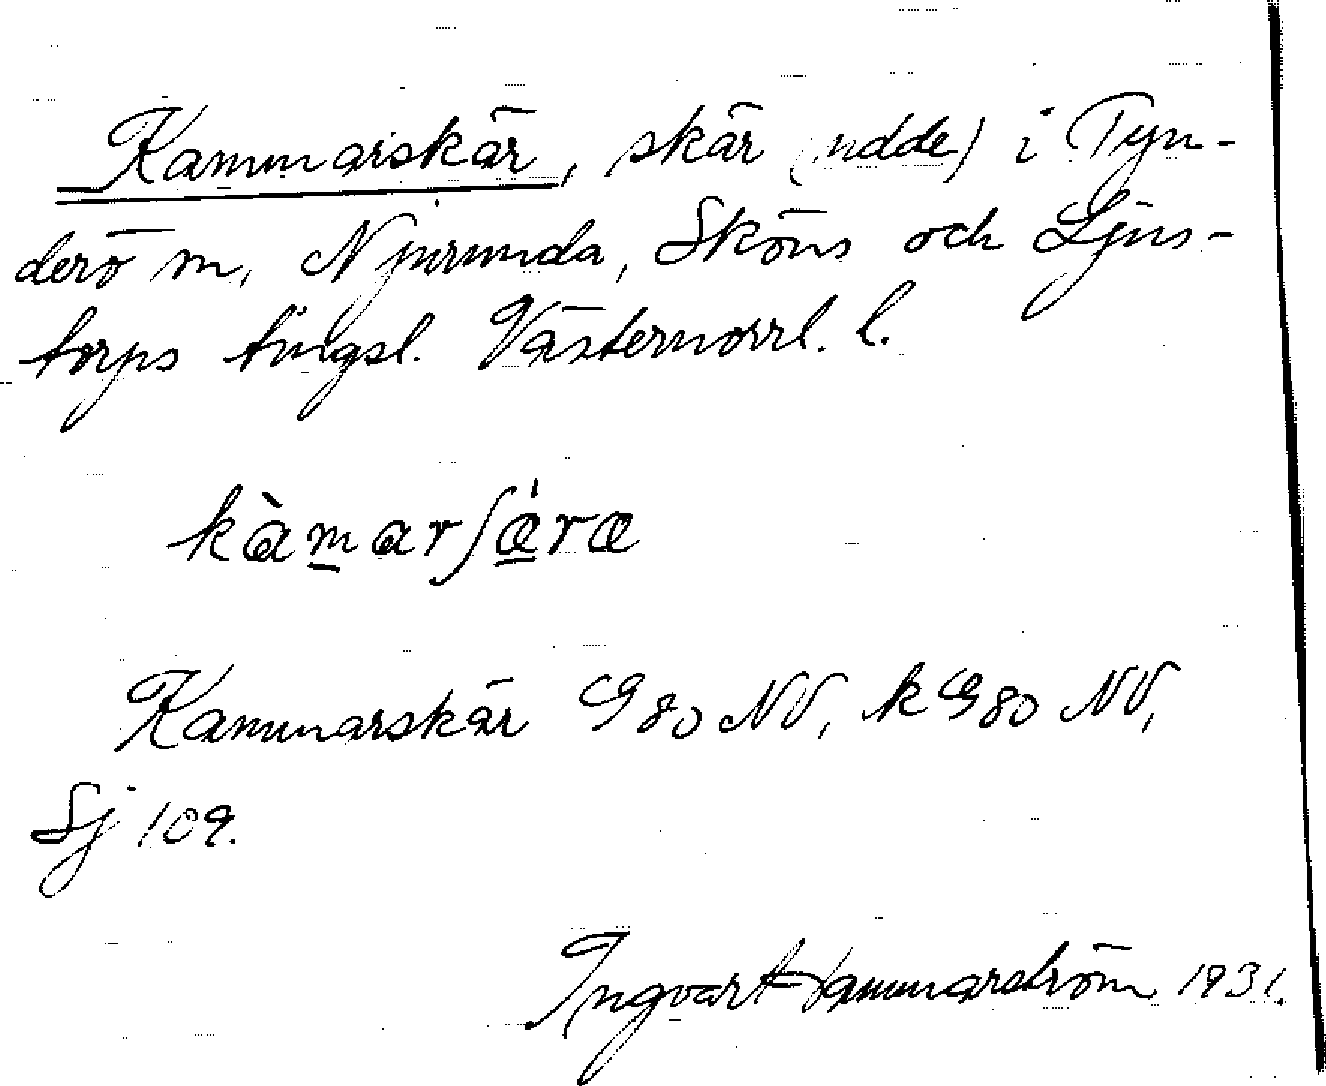 Kammarskär, skär (udde) i Tyn-
derö sn, Njurunda, Sköns och Ljus-
torps tingsl. Västernorrl. l.
kàmarʃǽræ
Kammarskär G 80 NV, k G 80 NV,
Sj 109.
Ingvart Hammarström 1931.